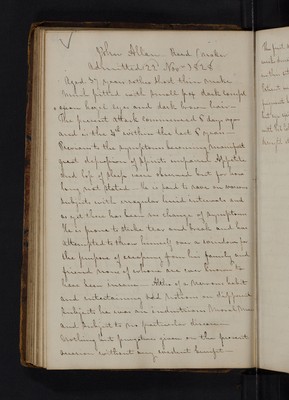 John Allan. Reed Maker
Admitted 22d Nov 1828
Aged 37 years rather stout dark
much pitted with Small pox dark complex-
-ion hazel eyes and dark brown hair
The present attack commenced 8 days ago
and is the 4th within the last 6 years
Previous to the symptoms becoming manifest
great depression of spirits impaired appetite
and loss of sleep were observed but for how
long not stated He is said to rave on various
subjects with irregular lucid intervals and
as yet there has been no change of symptoms
He is prone to strike tear and break and has
attempted to throw himself over a window for
the purpose of escaping from his family and
friends none of whom are ever known to
have been insane is of a nervous habit
and entertaining odd notions on different
subjects he was an industrious
and subject to no particular disease
Nothing but purgatives given on the present
occasion without any evident benefit